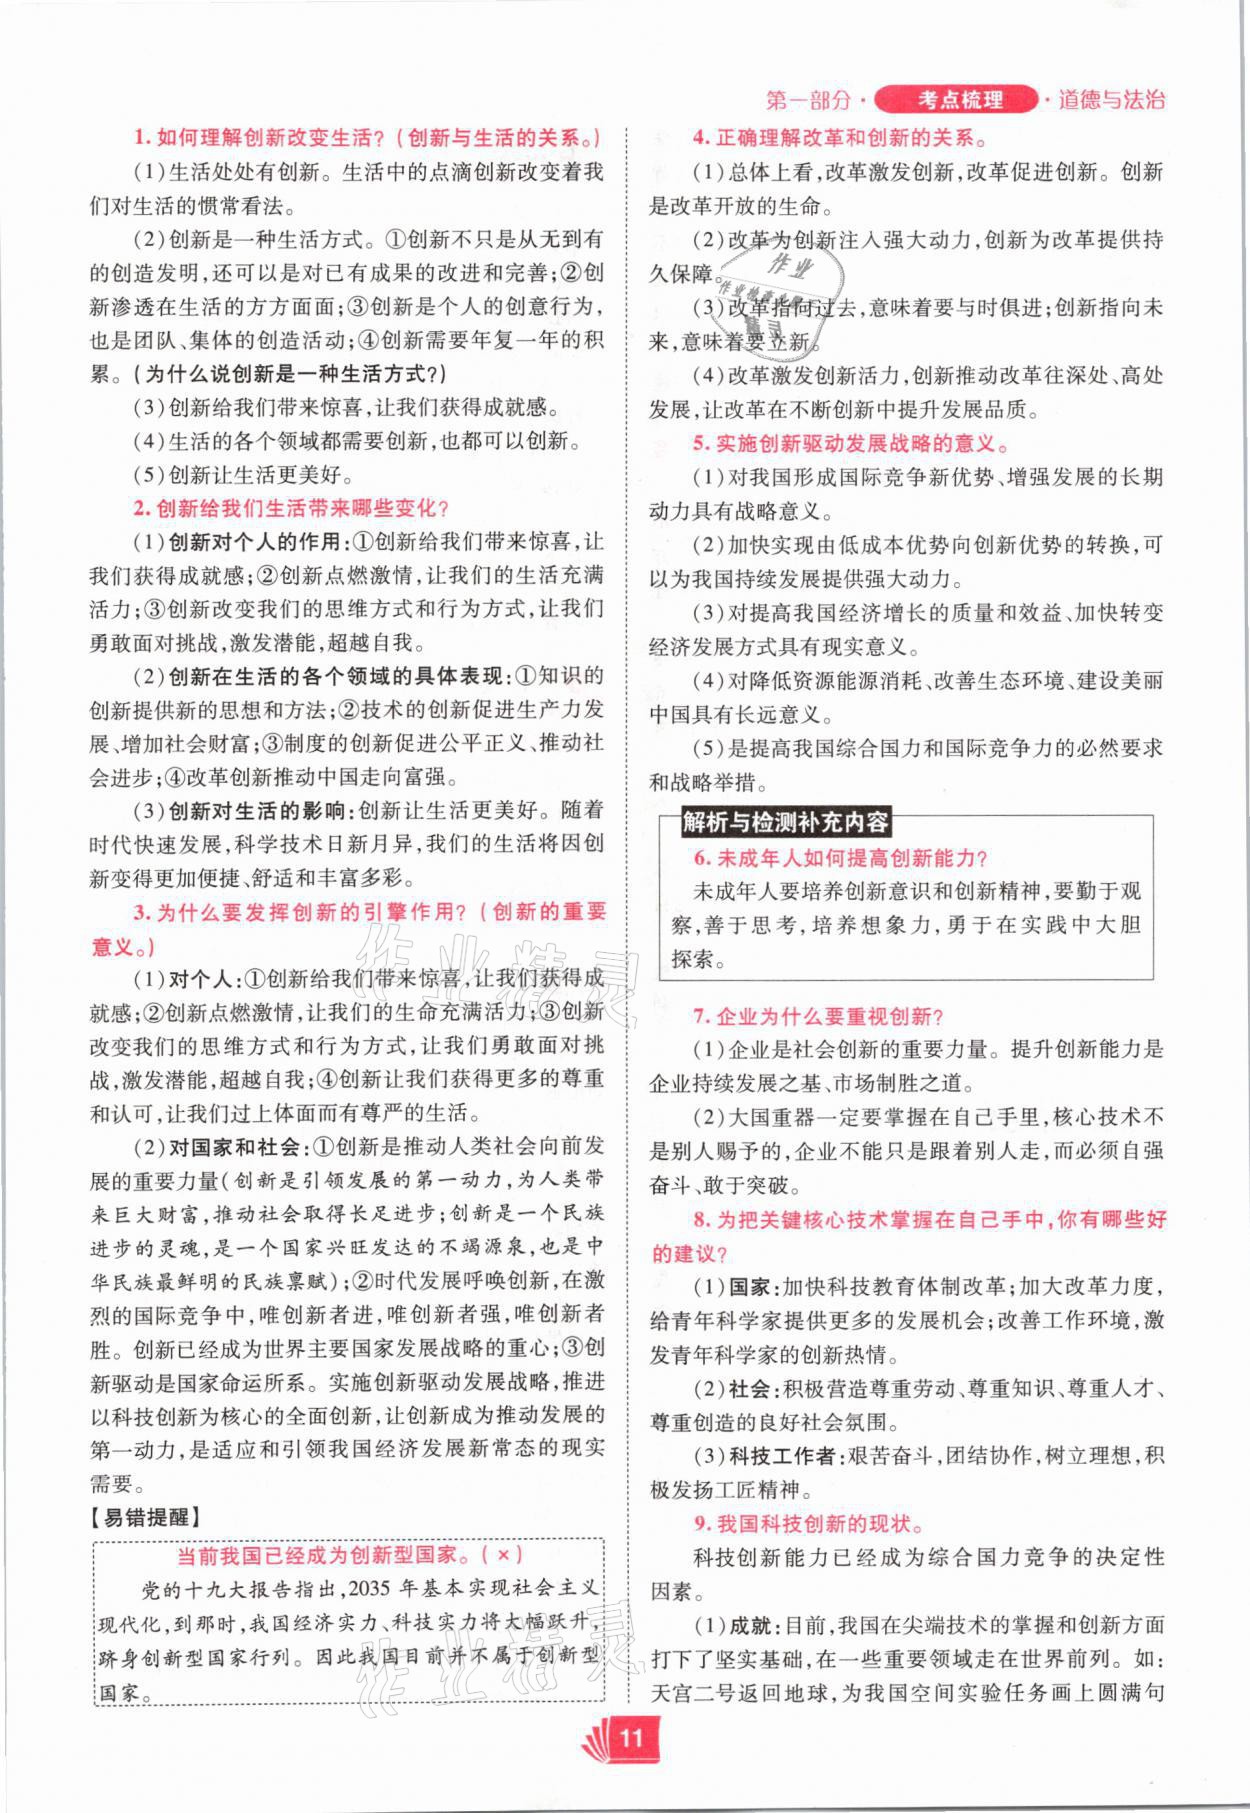 第一部分·考点梳理·道德与法治
1. 如何理解创新改变生活?(创新与生活的关系。)
(1)生活处处有创新。生活中的点滴创新改变着我
们对生活的惯常看法。
(2)创新是一种生活方式。①创新不只是从无到有
的创造发明,还可以是对已有成果的改进和完善;②创
新渗透在生活的方方面面;③创新是个人的创意行为,
也是团队、集体的创造活动;④创新需要年复一年的积
累。(为什么说创新是一种生活方式?)
(3)创新给我们带来惊喜,让我们获得成就感。
(4)生活的各个领域都需要创新,也都可以创新。
(5)创新让生活更美好。
2. 创新给我们生活带来哪些变化?
(1)创新对个人的作用:①创新给我们带来惊喜,让
我们获得成就感;②创新点燃激情,让我们的生活充满
活力;③创新改变我们的思维方式和行为方式,让我们
勇敢面对挑战,激发潜能,超越自我。
(2)创新在生活的各个领域的具体表现:①知识的
创新提供新的思想和方法;②技术的创新促进生产力发
展、增加社会财富;③制度的创新促进公平正义、推动社
会进步;④改革创新推动中国走向富强。
(3)创新对生活的影响:创新让生活更美好。随着
时代快速发展,科学技术日新月异,我们的生活将因创
新变得更加便捷、舒适和丰富多彩。
3. 为什么要发挥创新的引擎作用?(创新的重要
意义。)
(1)对个人:①创新给我们带来惊喜,让我们获得成
就感;②创新点燃激情,让我们的生命充满活力;③创新
改变我们的思维方式和行为方式,让我们勇敢面对挑
战,激发潜能,超越自我;④创新让我们获得更多的尊重
和认可,让我们过上体面而有尊严的生活。
(2)对国家和社会:①创新是推动人类社会向前发
展的重要力量(创新是引领发展的第一动力,为人类带
来巨大财富,推动社会取得长足进步;创新是一个民族
进步的灵魂,是一个国家兴旺发达的不竭源泉,也是中
华民族最鲜明的民族禀赋);②时代发展呼唤创新,在激
烈的国际竞争中,唯创新者进,唯创新者强,唯创新者
胜。创新已经成为世界主要国家发展战略的重心;③创
新驱动是国家命运所系。实施创新驱动发展战略,推进
以科技创新为核心的全面创新,让创新成为推动发展的
第一动力,是适应和引领我国经济发展新常态的现实
需要。
【易错提醒】
当前我国已经成为创新型国家。(×)
党的十九大报告指出,2035年基本实现社会主义
现代化,到那时,我国经济实力、科技实力将大幅跃升,
跻身创新型国家行列。因此我国目前并不属于创新型
国家。
4. 正确理解改革和创新的关系。
(1)总体上看,改革激发创新,改革促进创新。创新
是改革开放的生命。
(2)改革为创新注入强大动力,创新为改革提供持
久保障。
(3)改革指向过去,意味着要与时俱进;创新指向未
来,意味着要立新。
(4)改革激发创新活力,创新推动改革往深处、高处
发展,让改革在不断创新中提升发展品质。
5. 实施创新驱动发展战略的意义。
(1)对我国形成国际竞争新优势、增强发展的长期
动力具有战略意义。
(2)加快实现由低成本优势向创新优势的转换,可
以为我国持续发展提供强大动力。
(3)对提高我国经济增长的质量和效益、加快转变
经济发展方式具有现实意义。
(4)对降低资源能源消耗、改善生态环境、建设美丽
中国具有长远意义。
(5)是提高我国综合国力和国际竞争力的必然要求
和战略举措。
解析与检测补充内容
6. 未成年人如何提高创新能力?
未成年人要培养创新意识和创新精神,要勤于观
察,善于思考,培养想象力,勇于在实践中大胆
探索。
7. 企业为什么要重视创新?
(1)企业是社会创新的重要力量。提升创新能力是
企业持续发展之基、市场制胜之道。
(2)大国重器一定要掌握在自己手里,核心技术不
是别人赐予的,企业不能只是跟着别人走,而必须自强
奋斗、敢于突破。
8. 为把关键核心技术掌握在自己手中,你有哪些好
的建议?
(1)国家:加快科技教育体制改革;加大改革力度,
给青年科学家提供更多的发展机会;改善工作环境,激
发青年科学家的创新热情。
(2)社会:积极营造尊重劳动、尊重知识、尊重人才、
尊重创造的良好社会氛围。
(3)科技工作者:艰苦奋斗,团结协作,树立理想,积
极发扬工匠精神。
9. 我国科技创新的现状。
科技创新能力已经成为综合国力竞争的决定性
因素。
(1)成就:目前,我国在尖端技术的掌握和创新方面
打下了坚实基础,在一些重要领域走在世界前列。如:
天宫二号返回地球,为我国空间实验任务画上圆满句
11
作业精灵
作业精灵
作业
精灵